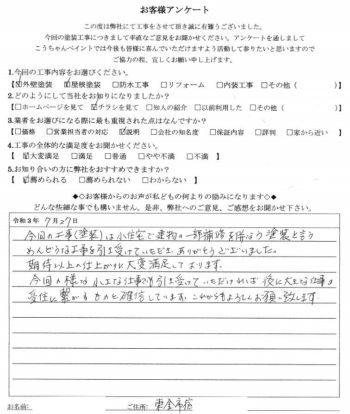 お客様アンケート
この度は弊社にて工事をさせて頂き誠に有難うございました。
今回の塗装工事につきまして率直なご意見をお聞かせください。アンケートを通しまして
こうちゃんペイントでは今後も皆様に喜んでいただけますよう活動して参りたいと思いますので
ご協力の程、宜しくお願い申し上げます。
1.今回の工事内容をお選びください。
☑外壁塗装 ☑屋根塗装 □防水工事 □リフォーム □内装工事 □その他( )
2.どのようにして当社をお知りになりましたか?
□ホームページを見て ☑チラシを見て □知人の紹介 □以前利用した □その他( )
3.業者をお選びになる際に最も重視された点はなんですか?
□価格 □営業担当者の対応 ☑説明 □会社の知名度 □保証内容 □評判 □家から近い
4.工事の全体的な満足度をお聞かせください。
☑大変満足 □満足 □普通 □やや不満 □不満
5.お知り合いの方に弊社をおすすめできますか?
☑薦められる □薦められない □わからない
◆◇お客様からのお声が私どもの何よりの励みになります◇◆
どんな些細な事でも構いません。是非、弊社へのご意見、ご感想をお聞かせ下さい。
令和3年 7月27日
今回の工事(塗装)は小住宅で建物の一部補修を伴なう塗装と言う
めんどうな工事を引き受けていただき ありがとうございました。
期待以上の仕上がりに大変満足しております。
今回の様な小さな仕事でも引き受けていただければ 後に大きな仕事の
受注に繋がるものと確信しています。これからもよろしくお願い致します
お名前: ご住所: 東金市